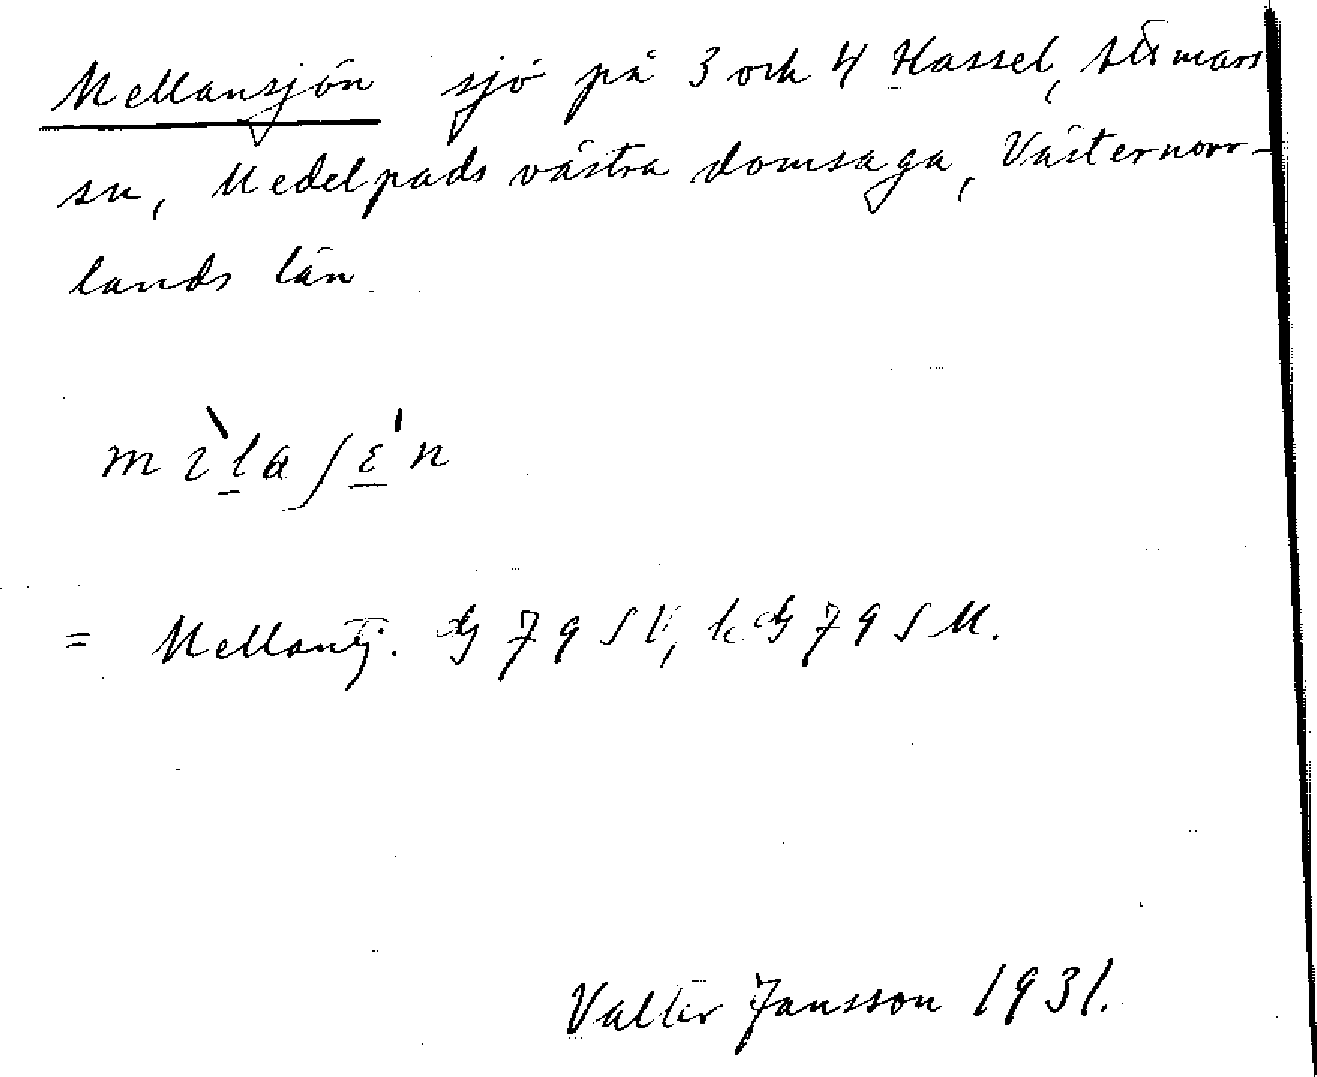 Mellansjön sjö på 3 och 4 Hassel, Attmars
sn, Medelpads västra domsaga, Västernorr-
lands län
= Mellantj. G 79 SV, k G 79 S M.
Valter Jansson 1931.